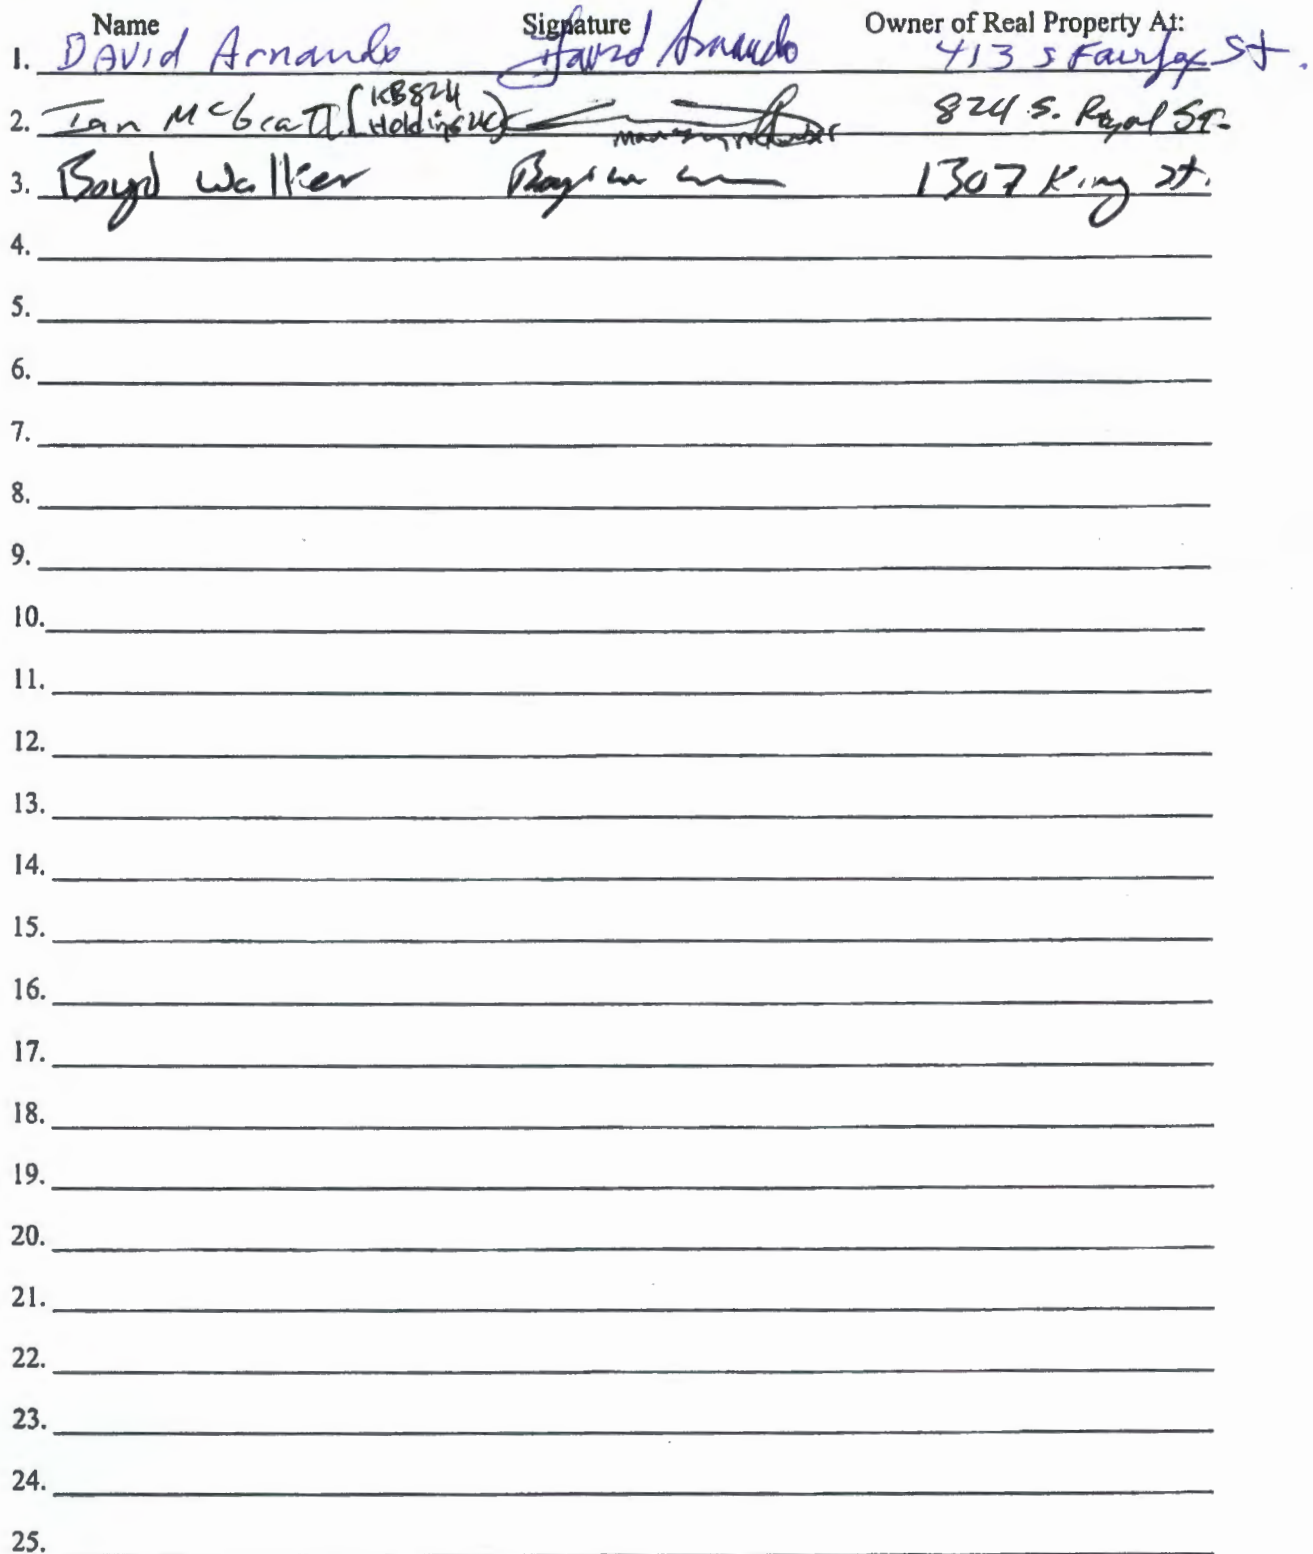 Name Signature Owner of Real Property At:
1. David Arnando David Arnando 413 S Fairfax St.
2. Ian McGrath (KB824 Holdings LLC) managing member 824 S. Royal St.
3. Boyd Walker 1307 King St.
4.
5.
6.
7.
8.
9.
10.
11.
12.
13.
14.
15.
16.
17.
18.
19.
20.
21.
22.
23.
24.
25.